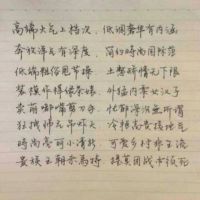 高端大气上档次 低调奢华有内涵
奔放洋气有深度 简约时尚国际范
低端粗俗甩节操 土鳖矫情无下限
装模作样绿茶婊 外猛内柔女汉子
卖萌嘟嘴剪刀手 忧郁深沉无所谓
狂拽帅吊炸天 冷艳高贵接地气
时尚亮可小清新 可爱乡村非主流
贵族王朝杀马特 提莫团战